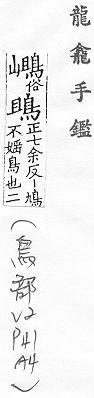 龍龕手鑑
俗鴡正七余反丨鳩
不媱鳥也二
(鳥部 V2 P41 A4)